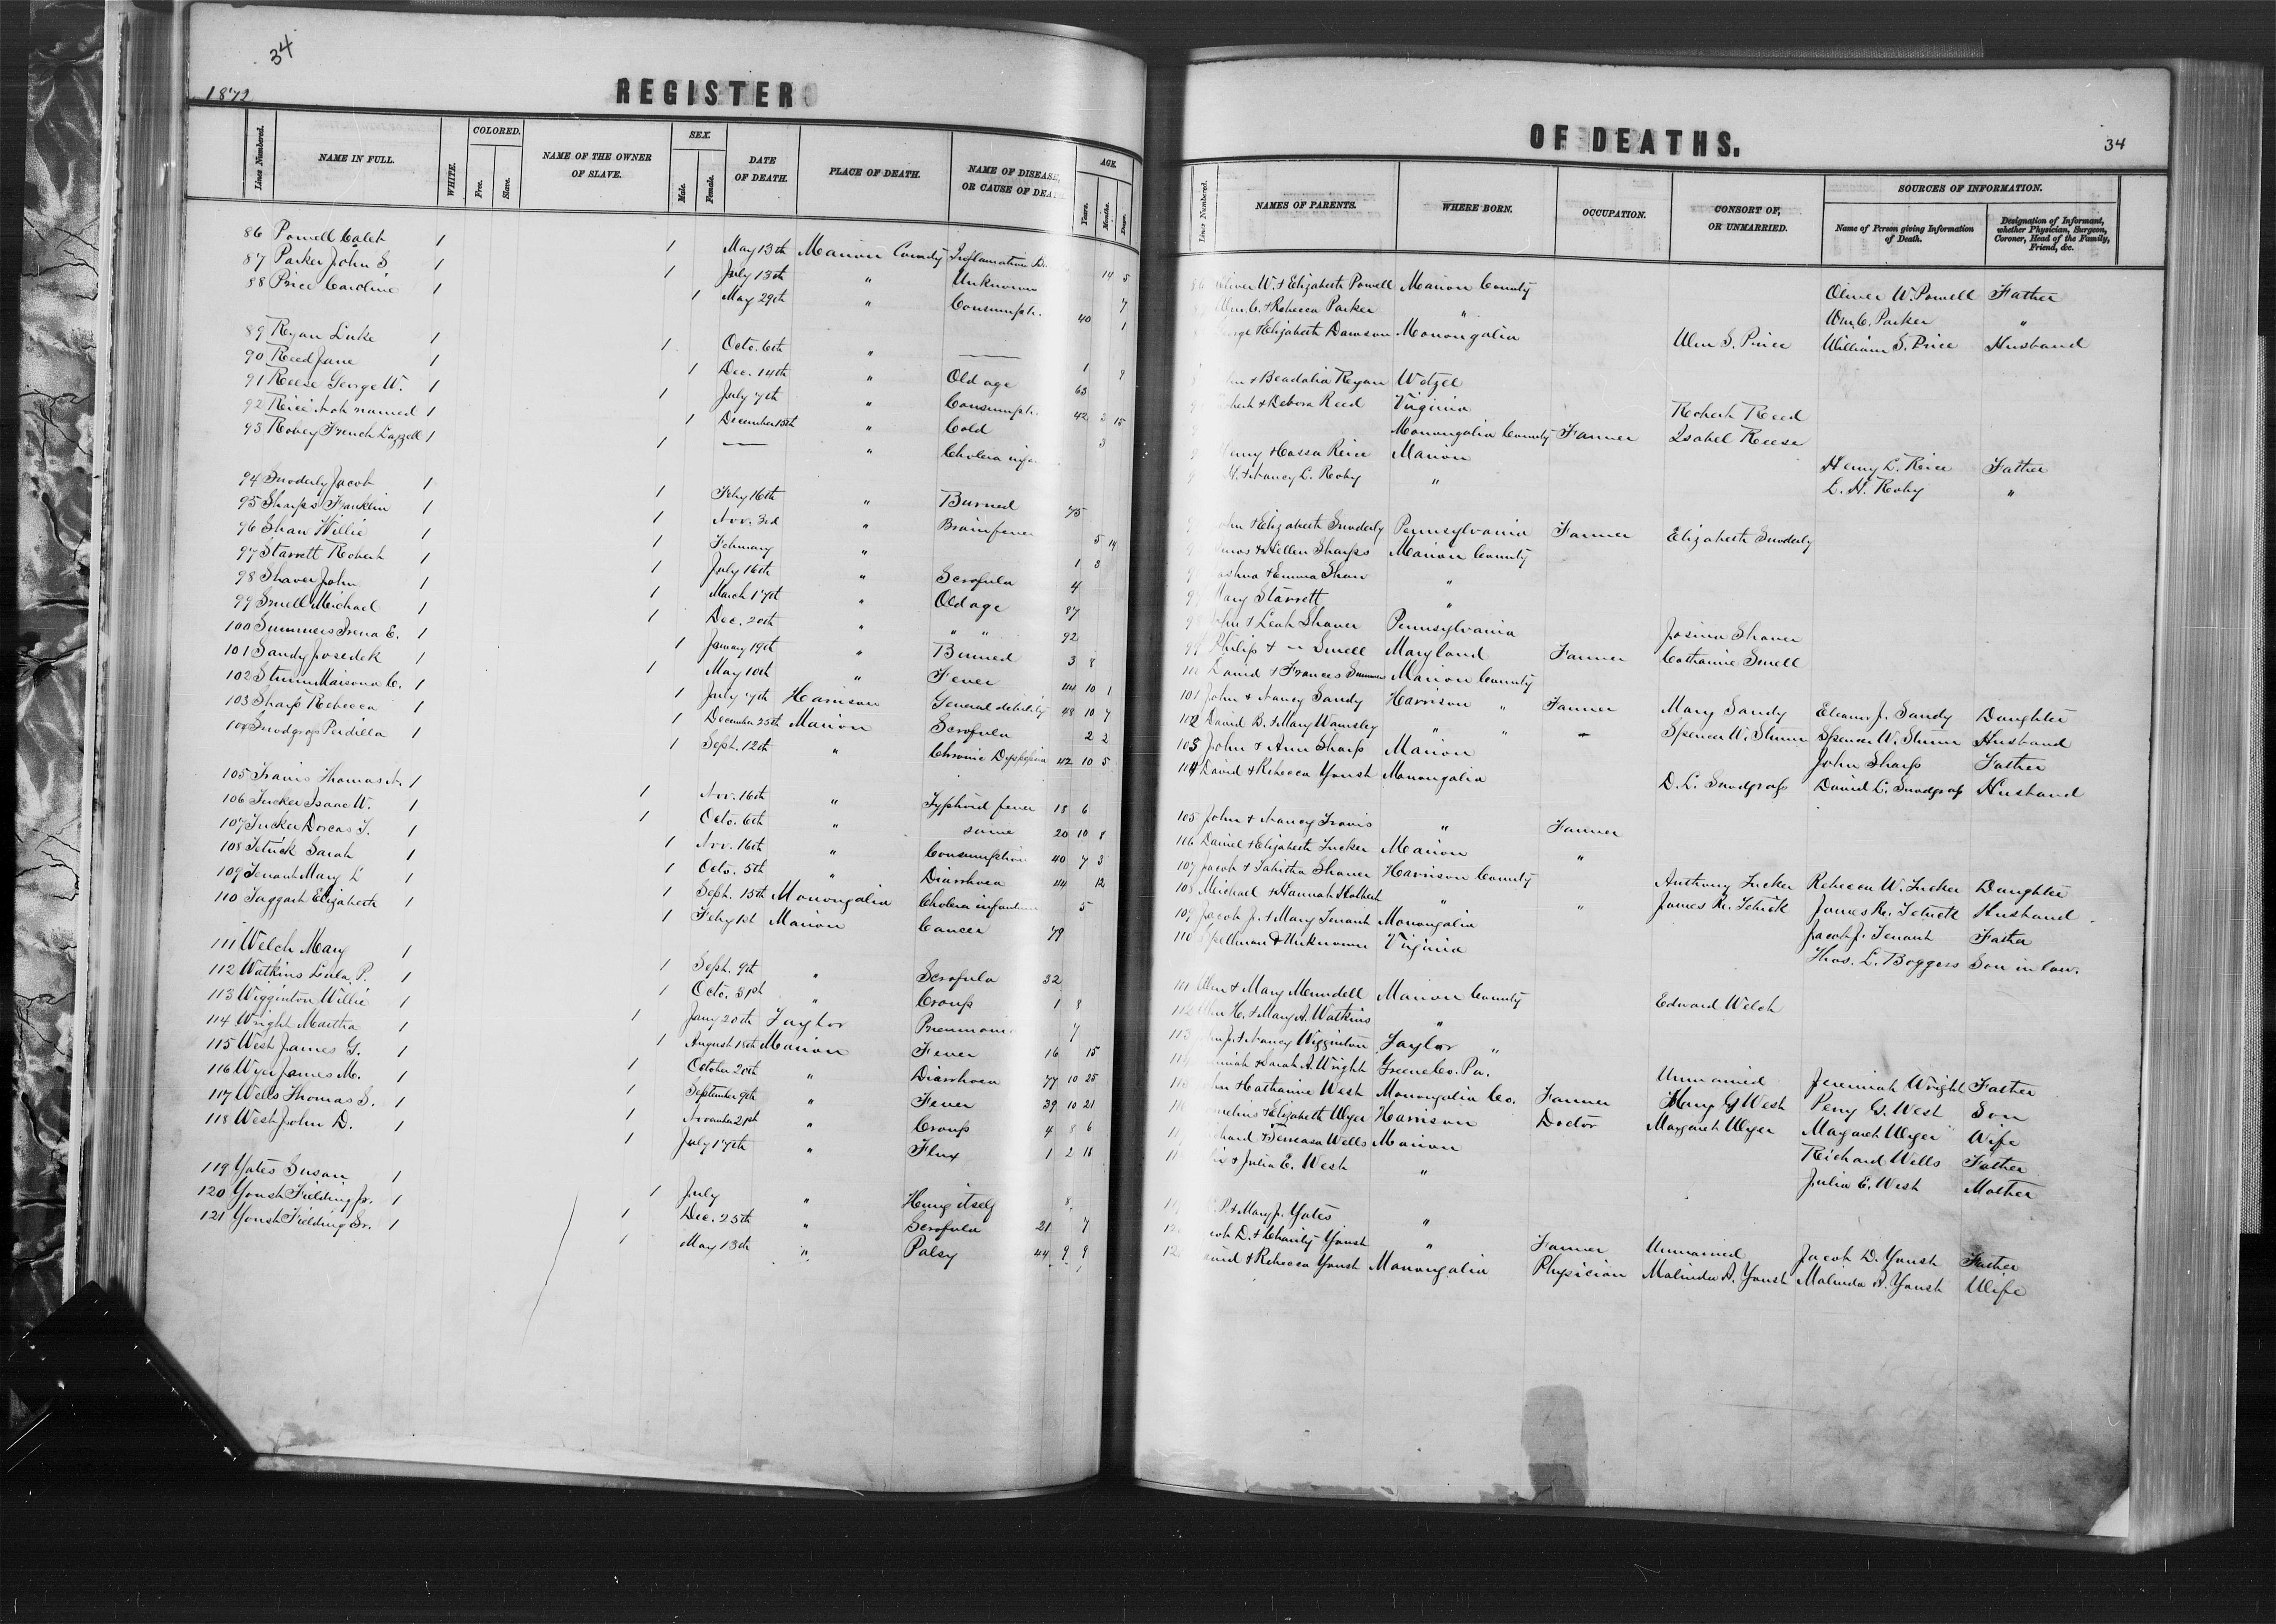 34
1872
REGISTER
Lines Numbered. NAME IN FULL. WHITE. COLORED. Free. Slave. NAME OF THE OWNER OF SLAVE. SEX. Male. Female. DATE OF DEATH. PLACE OF DEATH. NAME OF DISEASE, OR CAUSE OF DEA AGE. Years. Months. Days.
86 Powell Caleb 1 1 May 13th Marion County Inflamation 14 5
87 Parker John S 1 1 July 13th " Unknown 7
88 Price Caroline 1 1 May 29th " Consumpti 40 1
89 Ryan Luke 1 1 Octo. 6th " — 1 9
90 Reed Jane 1 1 Dec. 14th " Old age 63
91 Reese George W. 1 1 July 7th " Consumpti 42 3 15
92 Rice Not named 1 1 December 15th " Cold 3
93 Robey French Lazzell 1 1 — " Cholera inf
94 Snoderly Jacob 1 1 Feby 16th " Burned 75
95 Sharps Franklin 1 1 Nov. 3rd " Brain fever 5 14
96 Shaw Willie 1 1 February " 1 3
97 Starrett Robert 1 1 July 16th " Scrofula 4
98 Shaver John 1 1 March 17th " Old age 87
99 Snell Michael 1 1 Dec. 20th " " " 92
100 Summers Irena E. 1 1 January 19th " Burned 3 8
101 Sandy Josedek 1 1 May 10th " Fever 44 10 1
102 Sturm Maisona C. 1 1 July 7th Harrison General debility 48 10 7
103 Sharp Rebecca 1 1 December 25th Marion Scrofula 2 2
104 Snodgrass Perdilla 1 1 Sept. 12th " Chronic Dyspepsia 42 10 5
105 Travis Thomas N. 1 1 Nov. 16th " Typhoid fever 18 6
106 Tucker Isaac W. 1 1 Octo. 6th " same 20 10 8
107 Tucker Dorcas T. 1 1 Nov. 16th " Consumption 40 7 3
108 Tetrick Sarah 1 1 Octo. 5th " Diarrhoea 44 12
109 Tenant Mary L 1 1 Sept. 15th Monongalia Cholera infantum 5
110 Taggart Elizabeth 1 1 Feby 1st Marion Cancer 79
111 Welch Mary 1 1 Sept. 9th " Scrofula 32
112 Watkins Lula P. 1 1 Octo. 31st " Croup 1 8
113 Wigginton Willie 1 1 Jany 20th Taylor Pneumonia 7
114 Wright Martha 1 1 August 18th Marion Fever 16 15
115 West James G. 1 1 October 20th " Diarrhoea 77 10 25
116 Wyer James M. 1 1 September 9th " Fever 39 10 21
117 Wells Thomas S. 1 1 November 21st " Croup 4 8 6
118 West John D. 1 1 July 17th " Flux 1 2 16
119 Yates Susan 1 1 July " Hung itself 8
120 Yoush Fielding Jr. 1 1 Dec. 25th " Scrofula 21 7
121 Yoush Fielding Sr. 1 1 May 13th " Palsy 44 9 9
OF DEATHS.
34
Lines Numbered. NAMES OF PARENTS. WHERE BORN. OCCUPATION. CONSORT OF, OR UNMARRIED. SOURCES OF INFORMATION. Name of Person giving Information of Death. Designation of Informant, whether Physician, Surgeon, Coroner, Head of the Family, Friend, &c.
Oliver W. & Elizabeth Powell Marion County Oliver W. Powell Father
Wm. C. & Rebecca Parker " Wm. C. Parker "
George & Elizabeth Dawson Monongalia Wm S. Price William S. Price Husband
& Beadalia Ryan Wetzel
& Debora Reed Virginia Robert Reed
Monongalia County Farmer Isabel Reese
Henry & Cassa Rice Marion Henry L. Rice Father
H. & Nancy C. Roby " L. H. Roby "
John & Elizabeth Snoderly Pennsylvania Farmer Elizabeth Snoderly
& Hellen Sharps Marion County
& Emma Shaw "
Mary Starrett "
John & Leah Shaver Pennsylvania Shaver
99 Philip & — Snell Maryland Farmer Catharine Snell
100 David & Frances Summers Marion County
101 John & Nancy Sandy Harrison " Farmer Mary Sandy Eleanor J. Sandy Daughter
102 David B. & Mary Wamsley " " — Spencer W. Sturm Spencer W. Sturm Husband
103 John & Ann Sharp Marion John Sharp Father
104 David & Rebecca Yoush Monongalia D. L. Snodgrass David L. Snodgrass Husband
105 John & Nancy Travis " Farmer
106 Daniel & Elizabeth Tucker Marion "
107 Jacob & Tabitha Shaver Harrison County Anthony Tucker Rebecca W. Tucker Daughter
108 Michael & Hannah Holbert " " James R. Tetrick James R. Tetrick Husband
109 Jacob J. & Mary Tenant Monongalia Jacob J. Tenant Father
110 Spellman & Unknown Virginia Thos. L. Boggess Son in law.
111 & Mary Mundell Marion County Edward Welch
112 H. & Mary A. Watkins "
113 & Nancy Wigginton Taylor "
Jeremiah & Sarah A. Wright Greene Co. Pa. Unmarried Jeremiah Wright Father
John & Catharine West Monongalia Co. Farmer West Perry G. West Son
& Elizabeth Wyer Harrison Doctor Margaret Wyer Margaret Wyer Wife
Richard & Wells Marion Richard Wells Father
& Julia E. West " Julia E. West Mother
P. & Mary J. Yates "
Jacob D. & Charity Yoush " Farmer Unmarried Jacob D. Yoush Father
David & Rebecca Yoush Monongalia Physician Malinda A. Yoush Malinda A. Yoush Wife